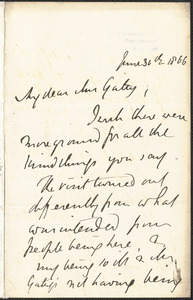 June 30th 1866
My dear Mrs Gatty,
I wish there were
more ground for all the
kind things you say.
The visit turned out
differently from what
was intended from
people being here, &
my being so & Mr
Gatty's not having being